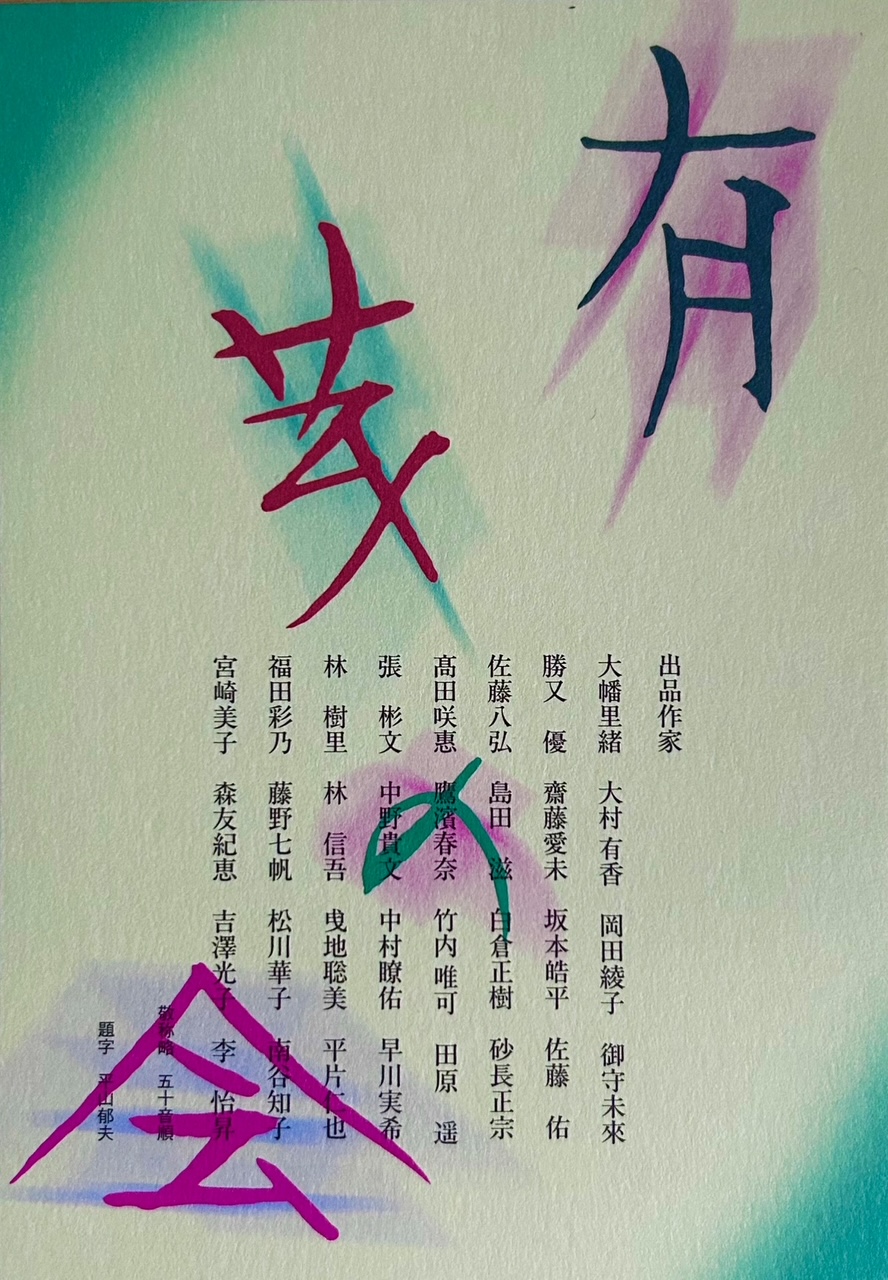 有芽の会
出品作家
大幡里緒 大村有香 岡田綾子 御守未來
勝又 優 齋藤愛未 坂本皓平 佐藤 佑
佐藤八弘 島田 滋 白倉正樹 砂長正宗
髙田咲惠 鷹濱春奈 竹内唯可 田原 遥
張 彬文 中野貴文 中村瞭佑 早川実希
林 樹里 林 信吾 曵地聡美 平片仁也
福田彩乃 藤野七帆 松川華子 南谷知子
宮崎美子 森友紀恵 吉澤光子 李 怡昇
敬称略 五十音順
題字 平山郁夫